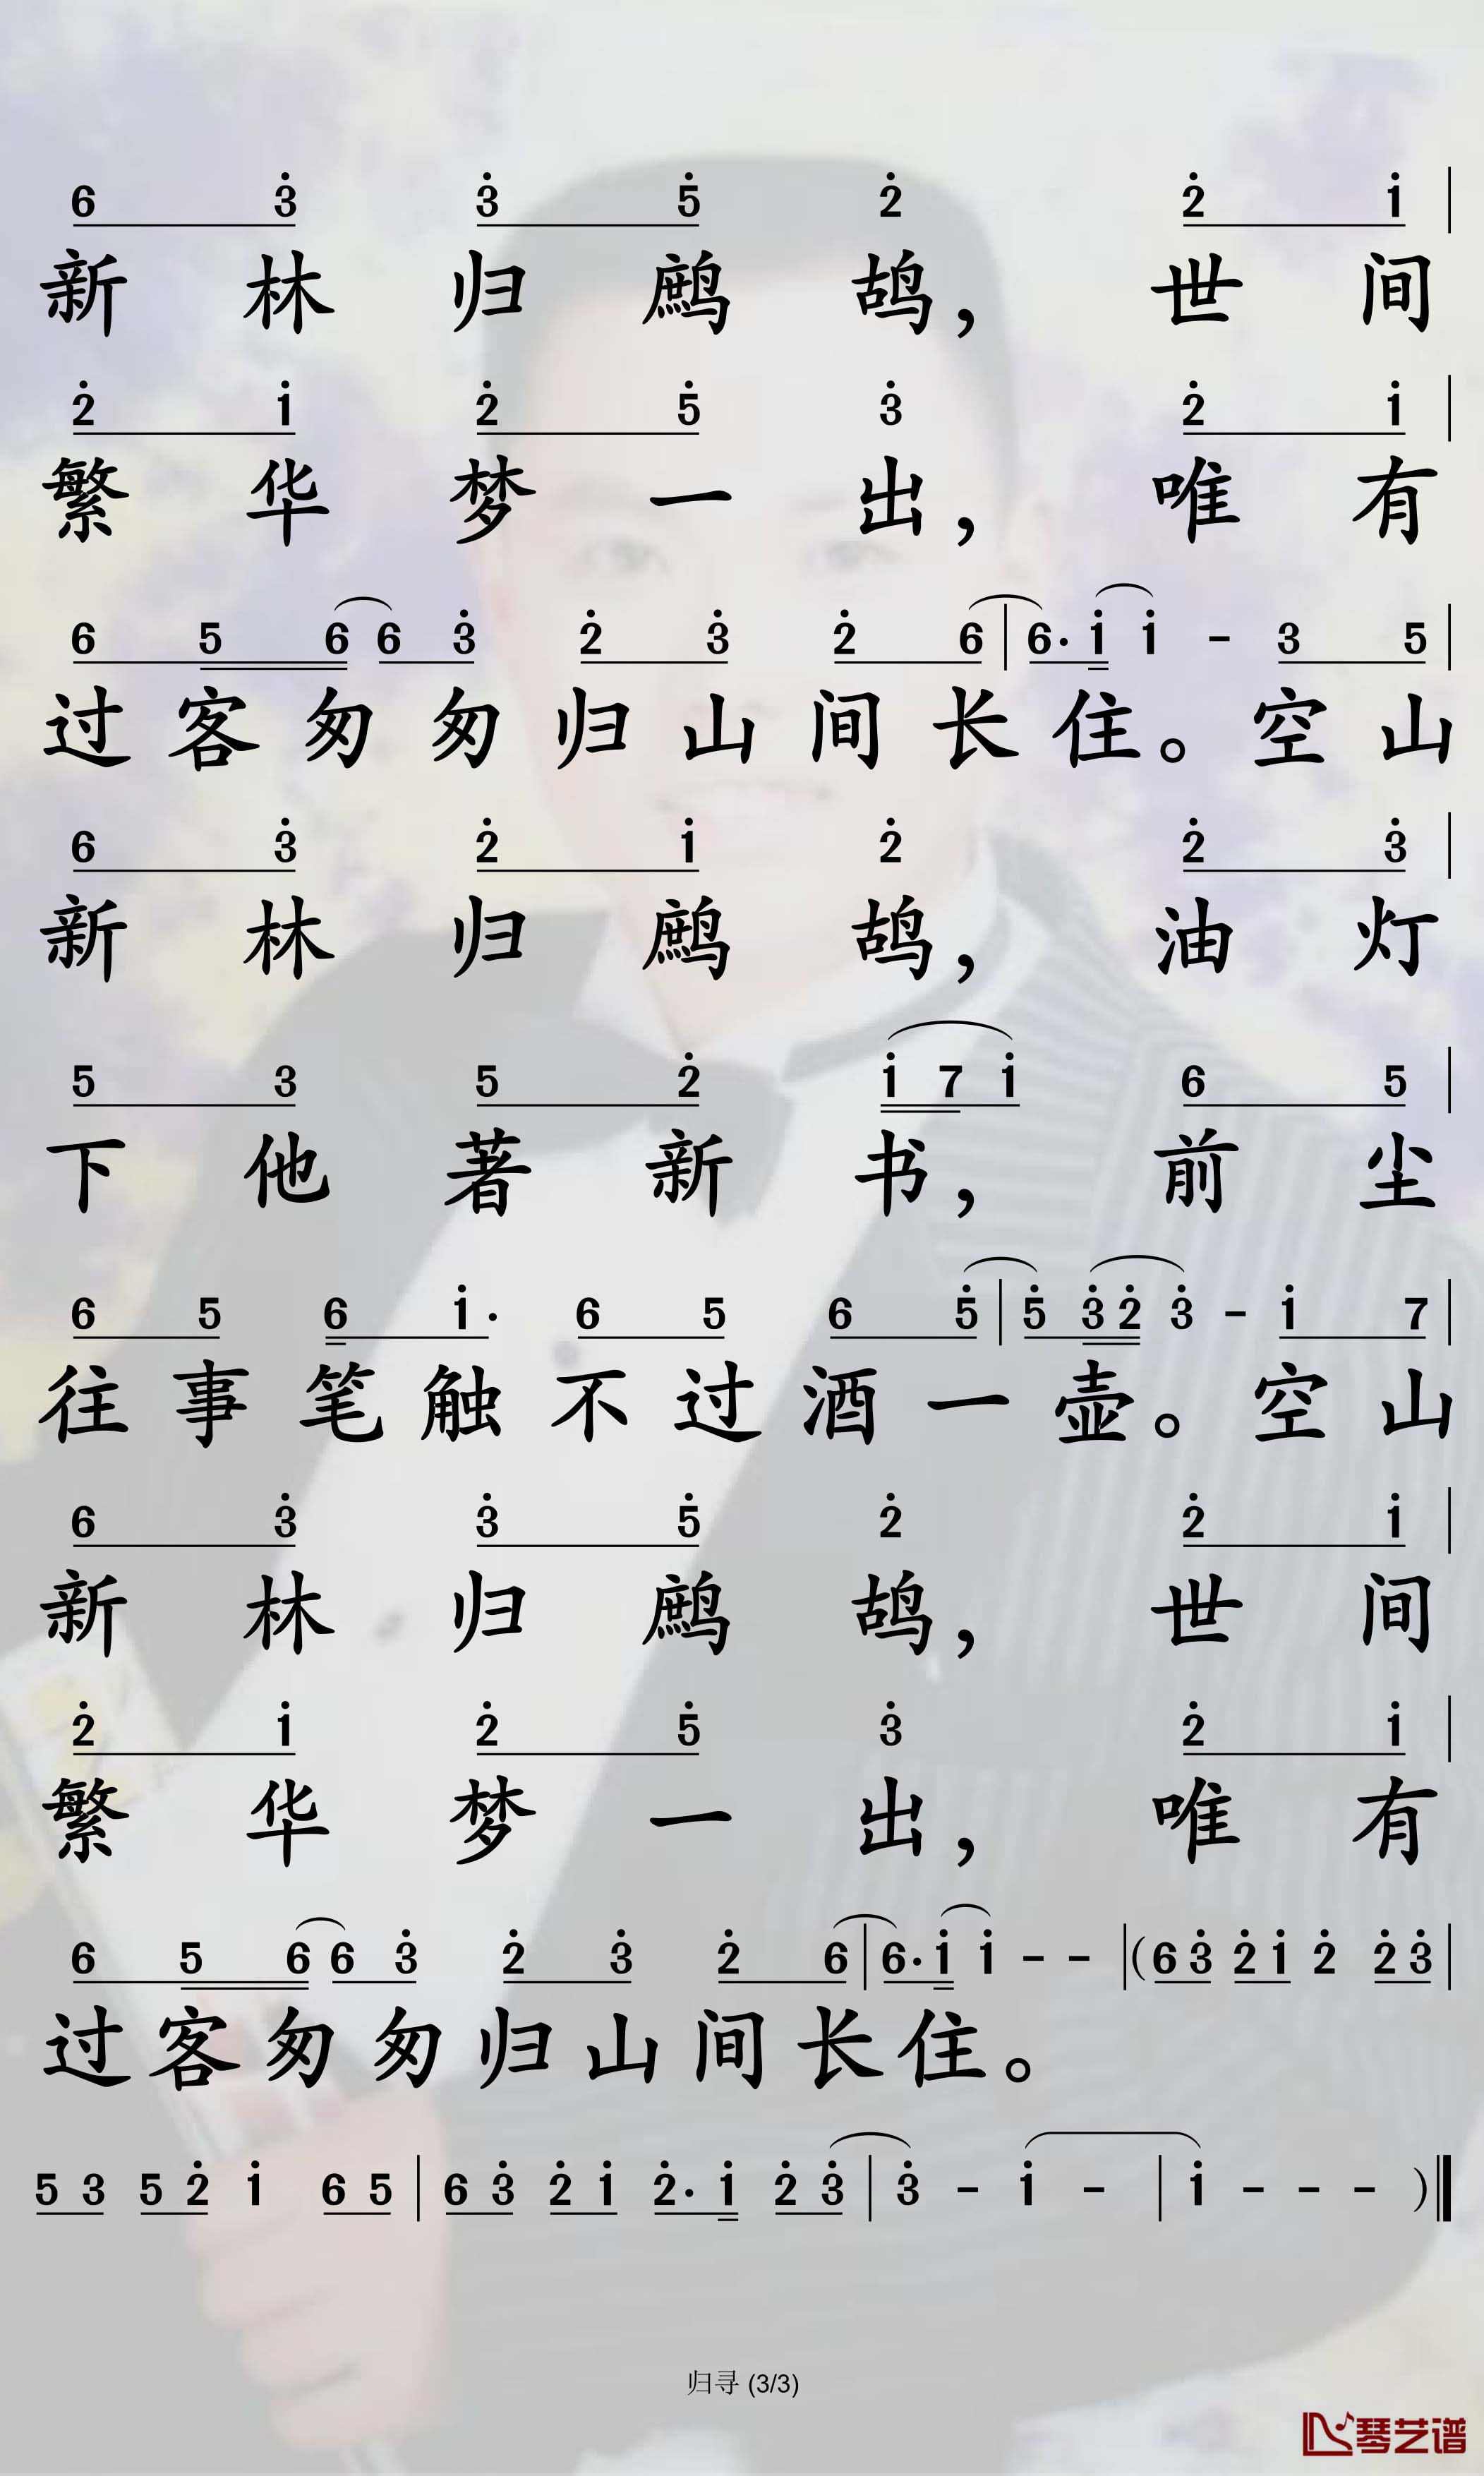 6 3̇ 3̇ 5̇ 2̇ 2̇ 1̇ |
新林归鹧鸪，世间
2̇ 1̇ 2̇ 5̇ 3̇ 2̇ 1̇ |
繁华梦一出，唯有
6 5 6 6 3̇ 2̇ 3̇ 2̇ 6 | 6· 1̇ 1̇ - 3 5 |
过客匆匆归山间长住。空山
6 3̇ 2̇ 1̇ 2̇ 2̇ 3̇ |
新林归鹧鸪，油灯
5 3 5 2̇ 1̇ 7 1̇ 6 5 |
下他著新书，前尘
6 5 6 1̇· 6 5 6 5̇ | 5̇ 3̇ 2̇ 3̇ - 1̇ 7 |
往事笔触不过酒一壶。空山
6 3̇ 3̇ 5̇ 2̇ 2̇ 1̇ |
新林归鹧鸪，世间
2̇ 1̇ 2̇ 5̇ 3̇ 2̇ 1̇ |
繁华梦一出，唯有
6 5 6 6 3̇ 2̇ 3̇ 2̇ 6 | 6· 1̇ 1̇ - - | (6 3̇ 2̇ 1̇ 2̇ 2̇ 3̇ |
过客匆匆归山间长住。
5 3 5 2̇ 1̇ 6 5 | 6 3̇ 2̇ 1̇ 2̇· 1̇ 2̇ 3̇ | 3̇ - 1̇ - | 1̇ - - - ) ‖
归寻 (3/3)
琴艺谱